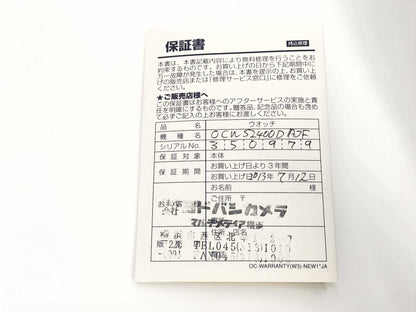 保証書
持込修理
本書は、本書記載内容により無料修理を行うことをお
約束するものです。お買い上げの日から下記期間中に
万一故障が発生した場合は、本書を提示の上、お買い上
げの販売店または「修理サービス窓口」に修理をご依頼
ください。
★ご販売店様へ
この保証書はお客様へのアフターサービスの実施と責
任を明確にするものです。贈答品、記念品の場合も含め
て必ずご記入の上お客様にお渡しください。
品名 ウオッチ
機種名 OCW-S2400D
シリアルNo. 350979
保証対象 本体
保証期間 お買い上げ日より3年間
お買い上げ日 2013年7月12日
お名前 様
ご住所 〒
ヨドバシカメラ
マルチメディア
TEL045(313)1010
OC-WARRANTY(W3)-NEW1*JA